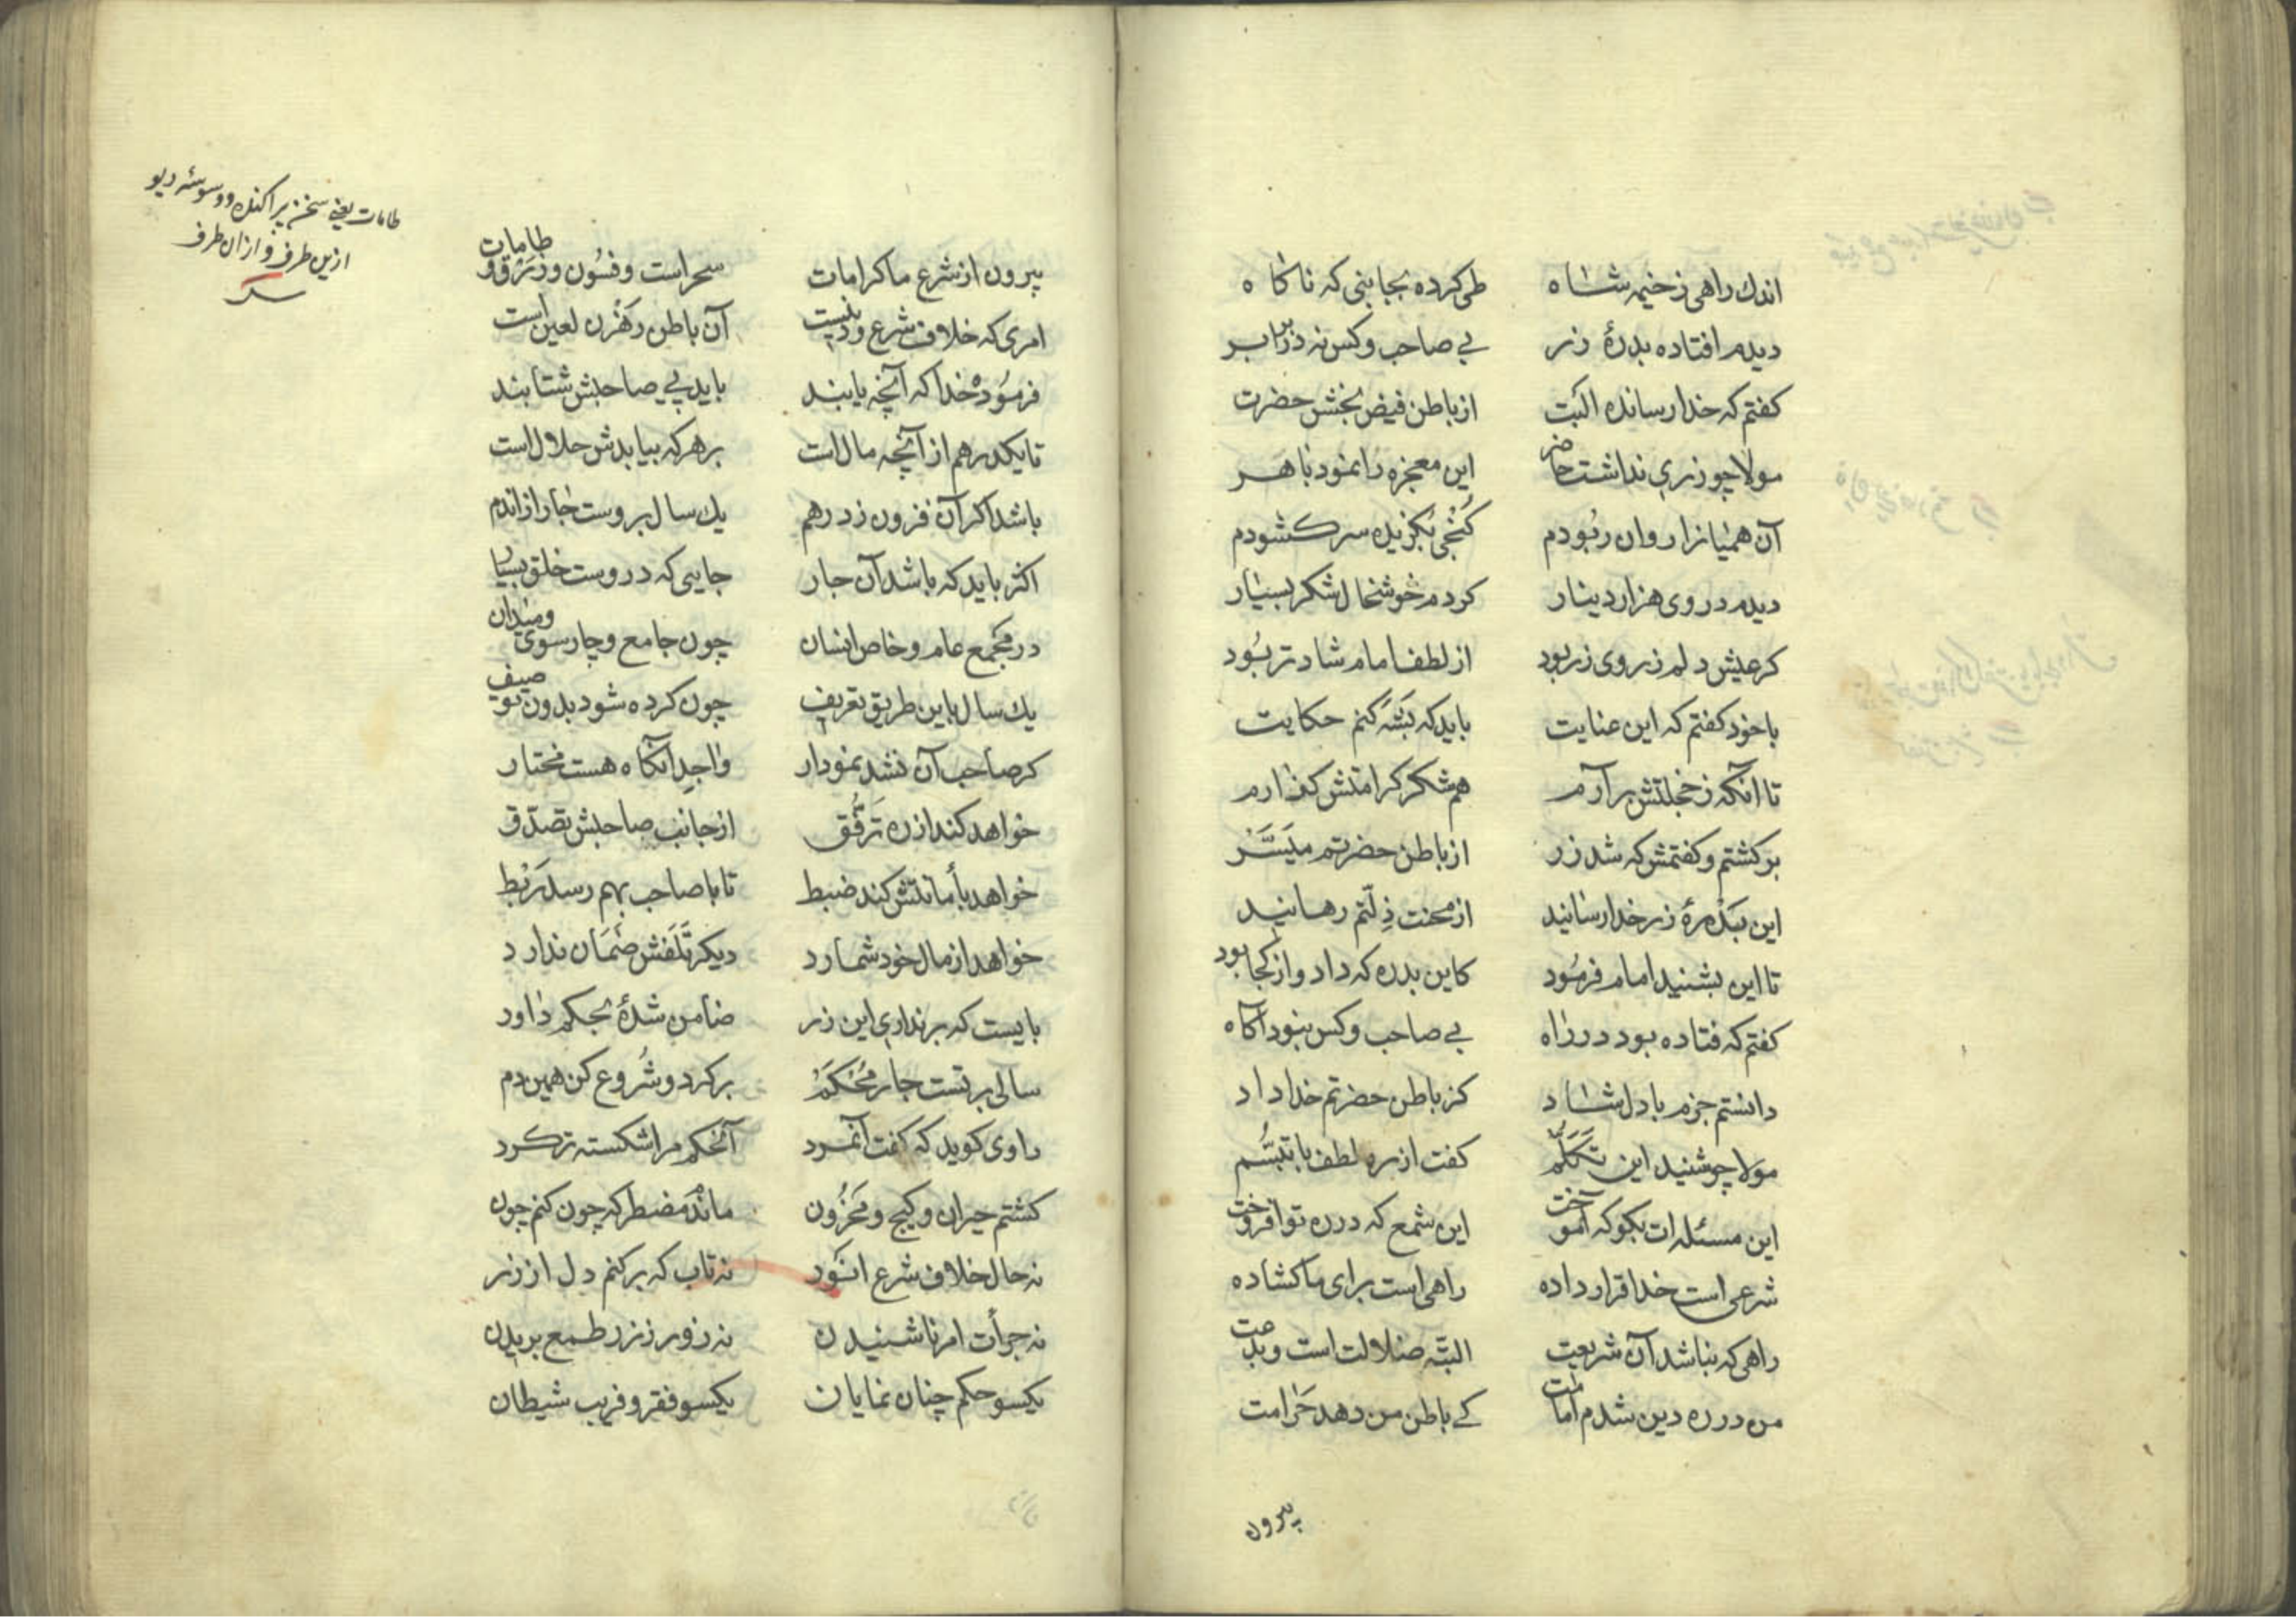 اندك راهی ز خیمه شاه طی کرده بجا بنی که ناکاه
دیدم افتاده بدرهٔ زر بی صاحب و کس نه در برابر
کفتم که خدا رسانده البت از باطن فیض بخش حضرت
مولا چو زری نداشت حاضر این معجزه را نمود باهر
آن همیانرا روان ربودم کنجی بکزیده سر کشودم
دیدم در وی هزار دینار کردم خوشحال شکر بسیار
کر عیش دلم ز روی زر بود از لطف امام شادتر بود
با خود کفتم که این عنایت باید که بشه کنم حکایت
تا آنکه ز خجلتش برآرم هم شکر کرامتش کذارم
برکشتم و کفتمش که شد زر از باطن حضرتم میسر
این بدرهٔ زر خدا رسانید از محنت ذلتم رهانید
تا این بشنید امام فرمود کاین بدره که داد و از کجا بود
کفتم که فتاده بود در راه بی صاحب و کس نبود آکاه
دانستم جزم با دل شاد کز باطن حضرتم خدا داد
مولا چو شنید این تکلم کفت از ره لطف با تبسم
این مسئله ات بکو که آموخت این شمع که در ره تو افروخت
شرعی است خدا قرار داده راهی است برای ما کشاده
راهی که نباشد آن شریعت البته ضلالت است و بدعت
من در ره دین شدم امامت کی باطن من دهد حرامت
بیرون
طامات یعنی سخن پراکنده و وسوسه دیو
ازین طرف و ازان طرف
بیرون از شرع ما کرامات سحر است و فسون و زرق و طامات
امری که خلاف شرع و دینست آن باطن رهزن لعین است
فرموده خدا که آنچه یابند باید پی صاحبش شتابند
تا یکدرهم از آنچه مال است بر هر که بیابدش حلال است
باشد اکر آن فزون ز درهم یك سال بروست جار ازاندم
اکثر باید که باشد آن جار جایی که دروست خلق بسیار
در مجمع عام و خاص انسان چون جامع و چارسوی و میدان
یك سال باین طریق تعریف چون کرده شود بدون توصیف
کر صاحب آن نشد نمودار واجد آنکاه هست مختار
خواهد کند از ره ترفق از جانب صاحبش تصدق
خواهد بأمانتش کند ضبط تا با صاحب بهم رسد ربط
خواهد از مال خود شمارد دیکر تلفش ضمان ندارد
بایست که برنداری این زر ضامن شدهٔ بحکم داور
سالی بر تست جار محکم برکرد و شروع کن همین دم
راوی کوید که کفت آنمرد آنحکم مرا شکسته تر کرد
کشتم حیران و کیج و محزون مانده مضطر که چون کنم چون
نه حال خلاف شرع انور نه تاب که برکنم دل از زر
نه جرأت امر ناشنیدن نه زور ز زر طمع بریدن
یکسو حکم چنان نمایان یکسو فقر و فریب شیطان